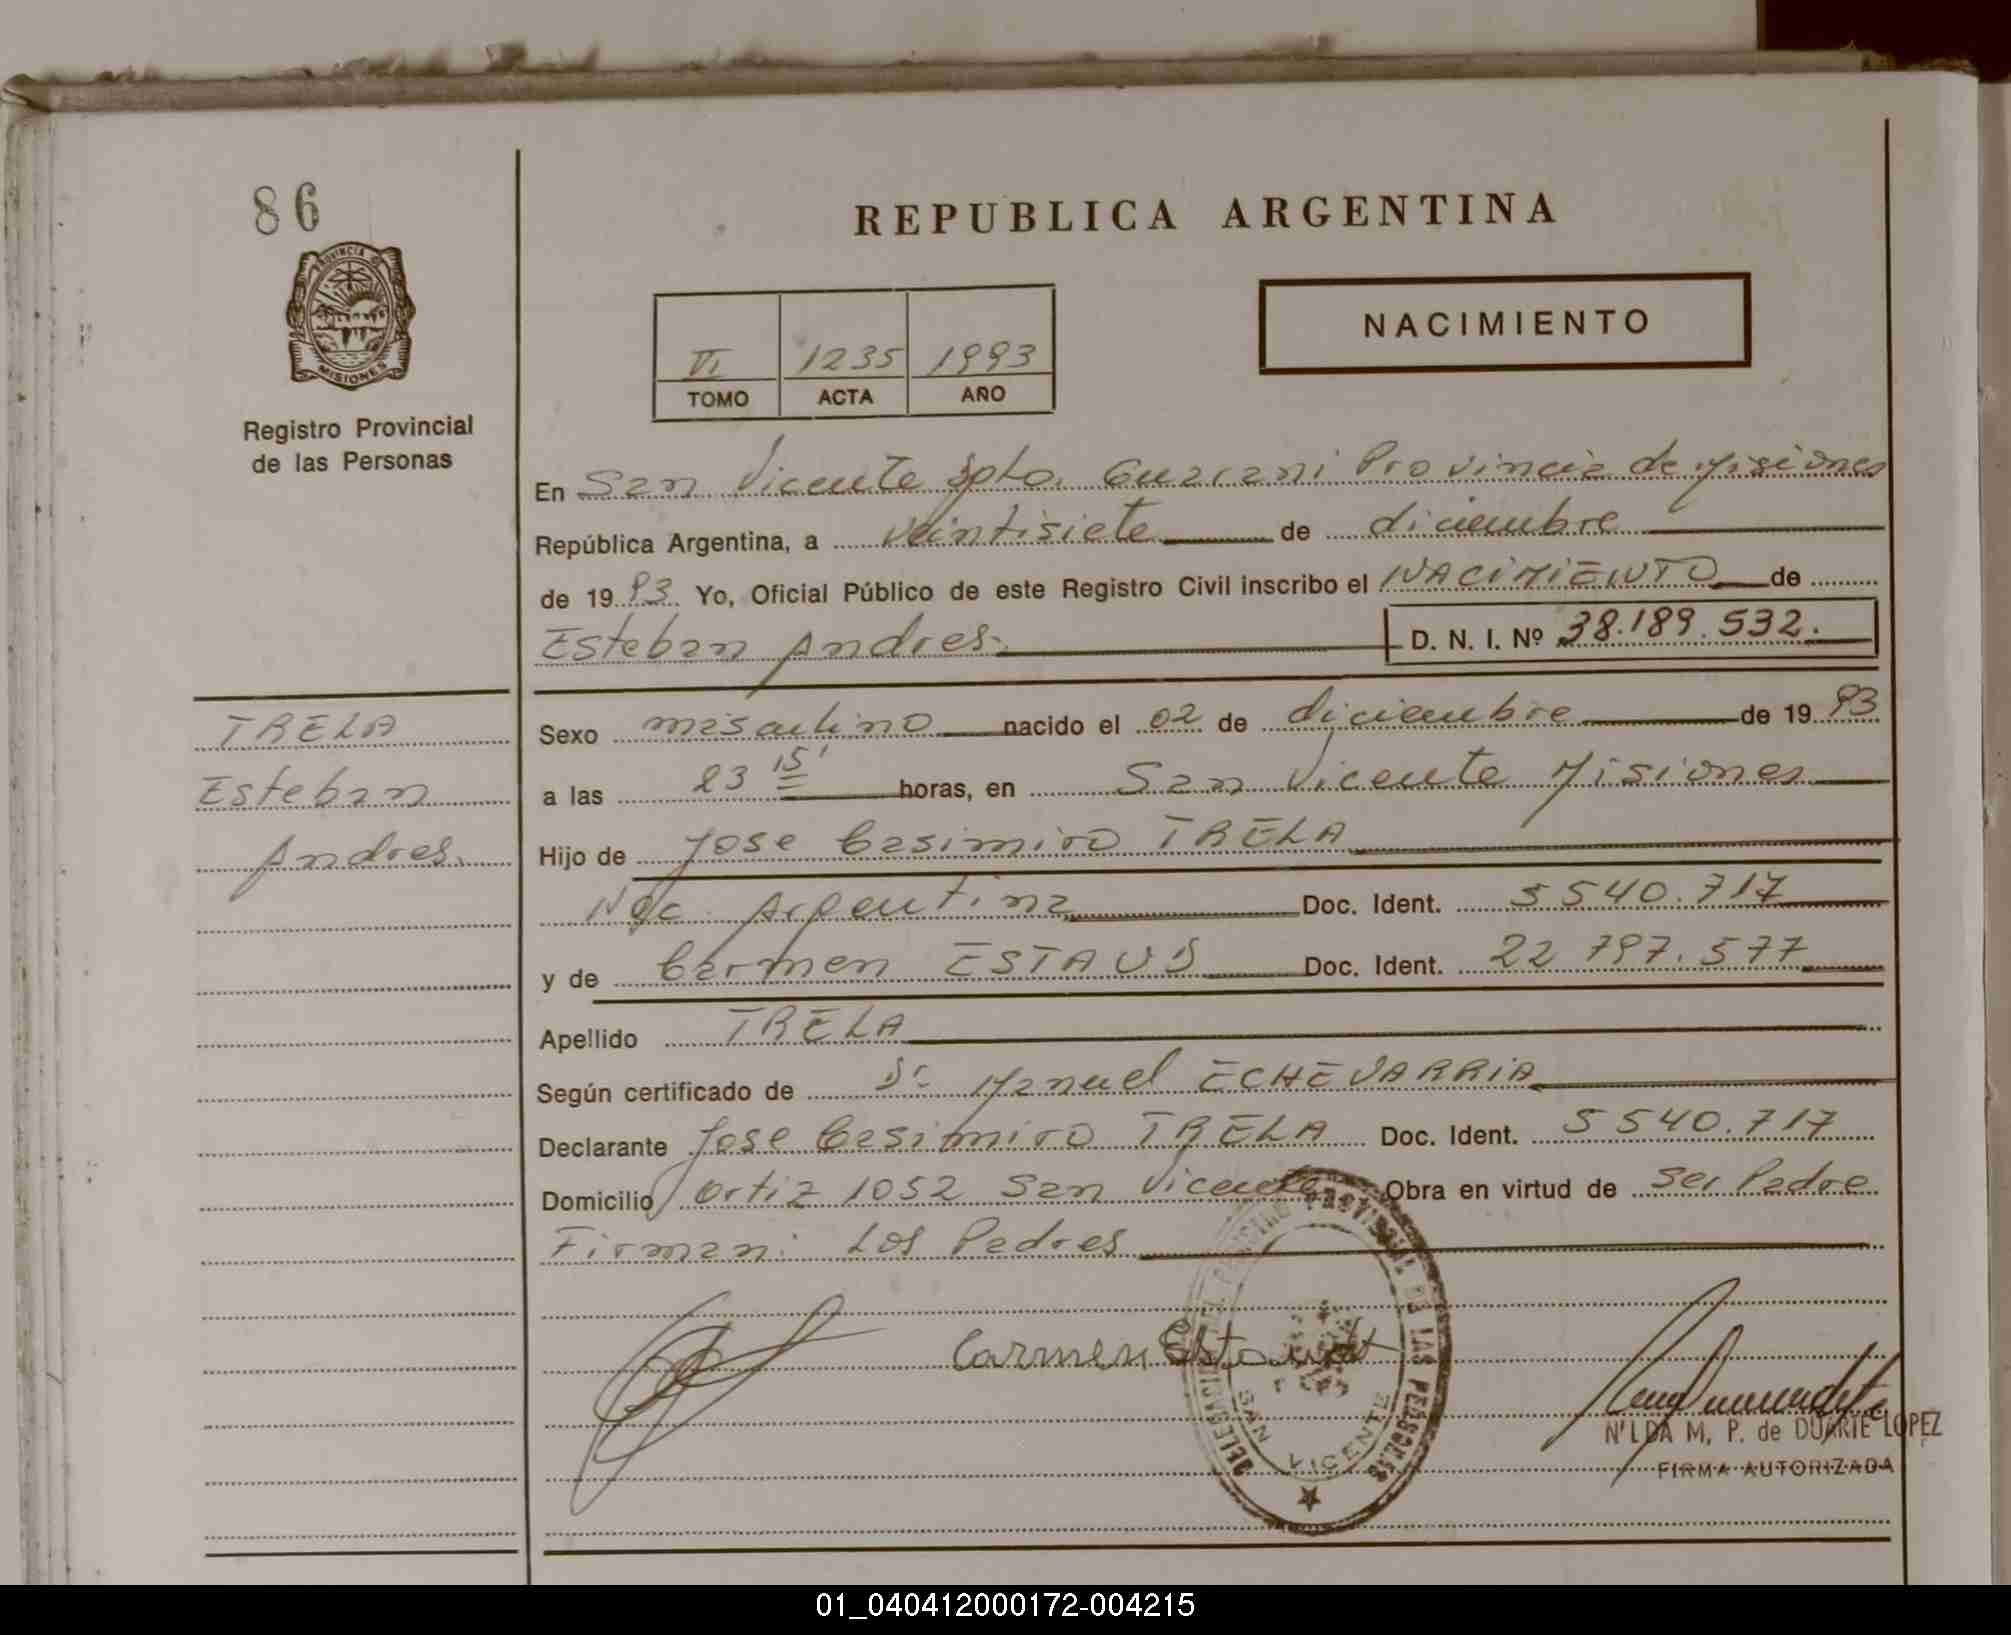 86
PROVINCIA DE
MISIONES
Registro Provincial
de las Personas
REPUBLICA ARGENTINA
NACIMIENTO
VI 1235 1993
TOMO ACTA AÑO
En San Vicente Dpto. Guarani Provincia de Misiones
República Argentina, a veintisiete de diciembre
de 1993 Yo, Oficial Público de este Registro Civil inscribo el NACIMIENTO de
Esteban Andres. D. N. I. Nº 38.189.532.
TRELA
Esteban
Andres.
Sexo masculino nacido el 02 de diciembre de 1993
a las 23 15' horas, en San Vicente Misiones
Hijo de Jose Casimiro TRELA
Nac. Argentina Doc. Ident. 5540.717
y de Carmen ESTAUD Doc. Ident. 22 797.577
Apellido TRELA
Según certificado de Dr. Manuel ECHEVARRIA
Declarante Jose Casimiro TRELA Doc. Ident. 5540.717
Domicilio Ortiz 1052 San Vicente Obra en virtud de ser Padre
Firman: Los Padres
Carmen
DELEGACION DEL REGISTRO PROVINCIAL DE LAS PERSONAS
SAN VICENTE
NILDA M. P. de DUARTE LOPEZ
FIRMA AUTORIZADA
01_040412000172-004215